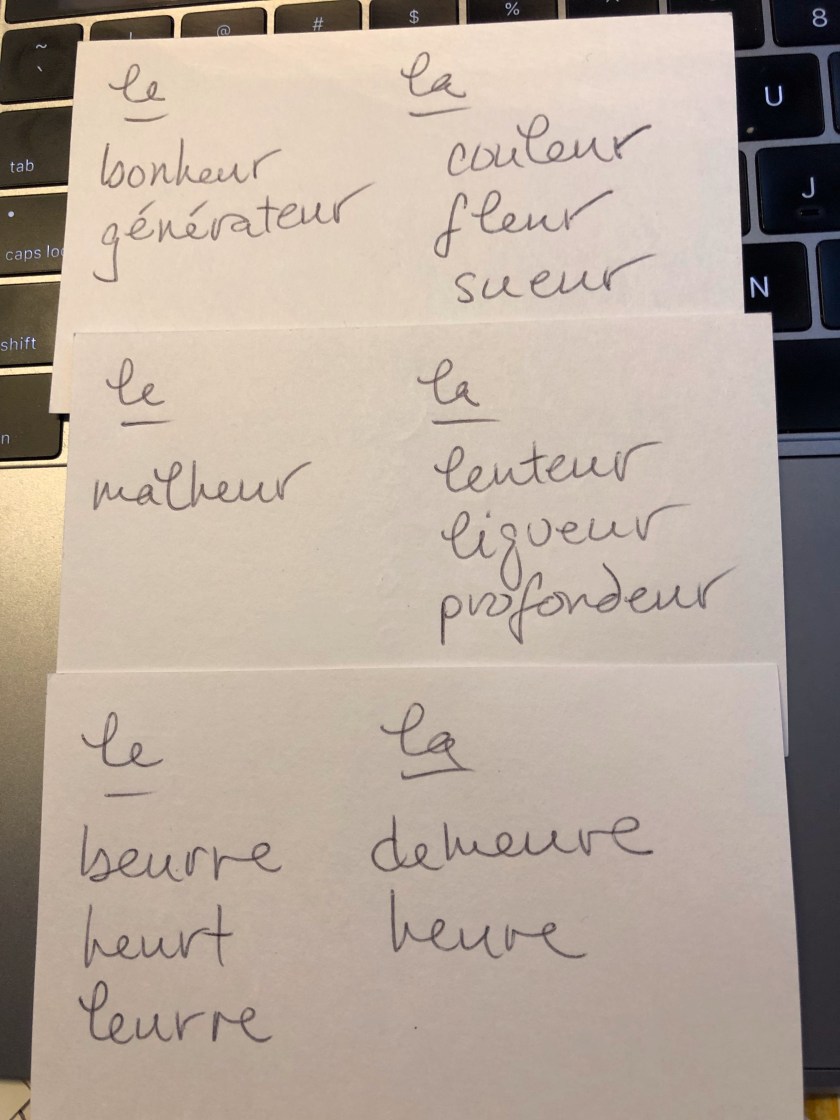 ~ ! @ # $ % 8
`
tab
U
J
caps loc
N
shift
n
le la
bonheur couleur
générateur fleur
sueur
le la
malheur lenteur
liqueur
profondeur
le la
beurre demeure
heurt heure
leurre